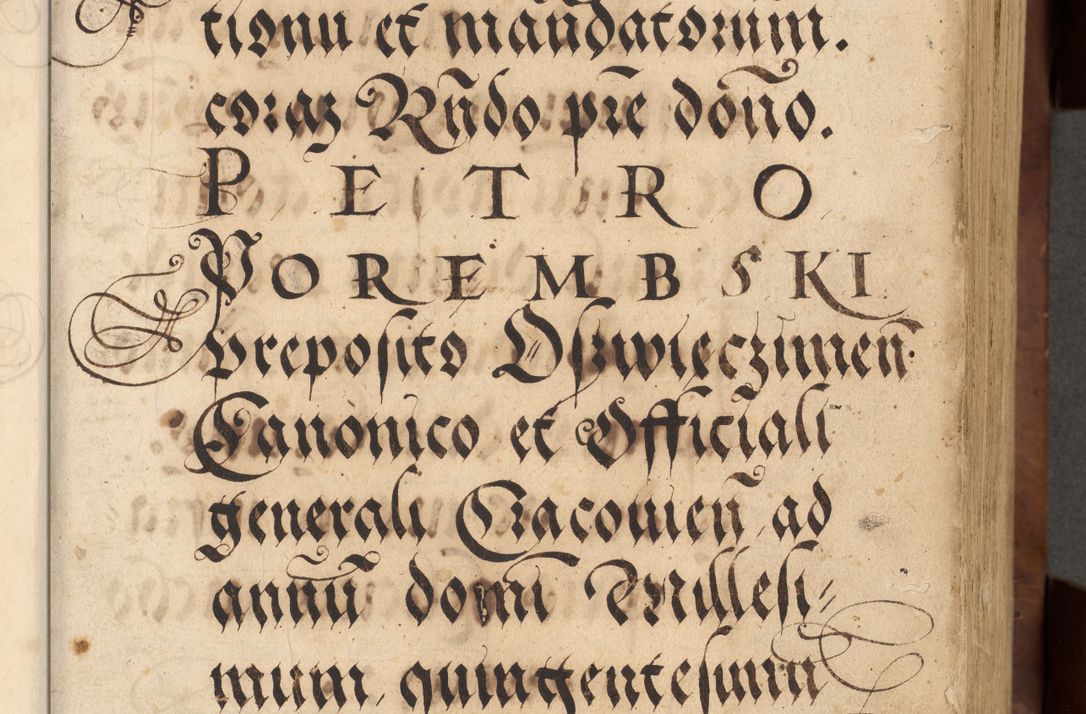 tionu et mandatorum.
coraz Rñdo pre dono.
PETRO
POREMBSKI
preposito Oswięczimeñ.
Canonico et Officiali
generali Cracouieñ ad
annũ domi Millesi-
mum quingentesimũ